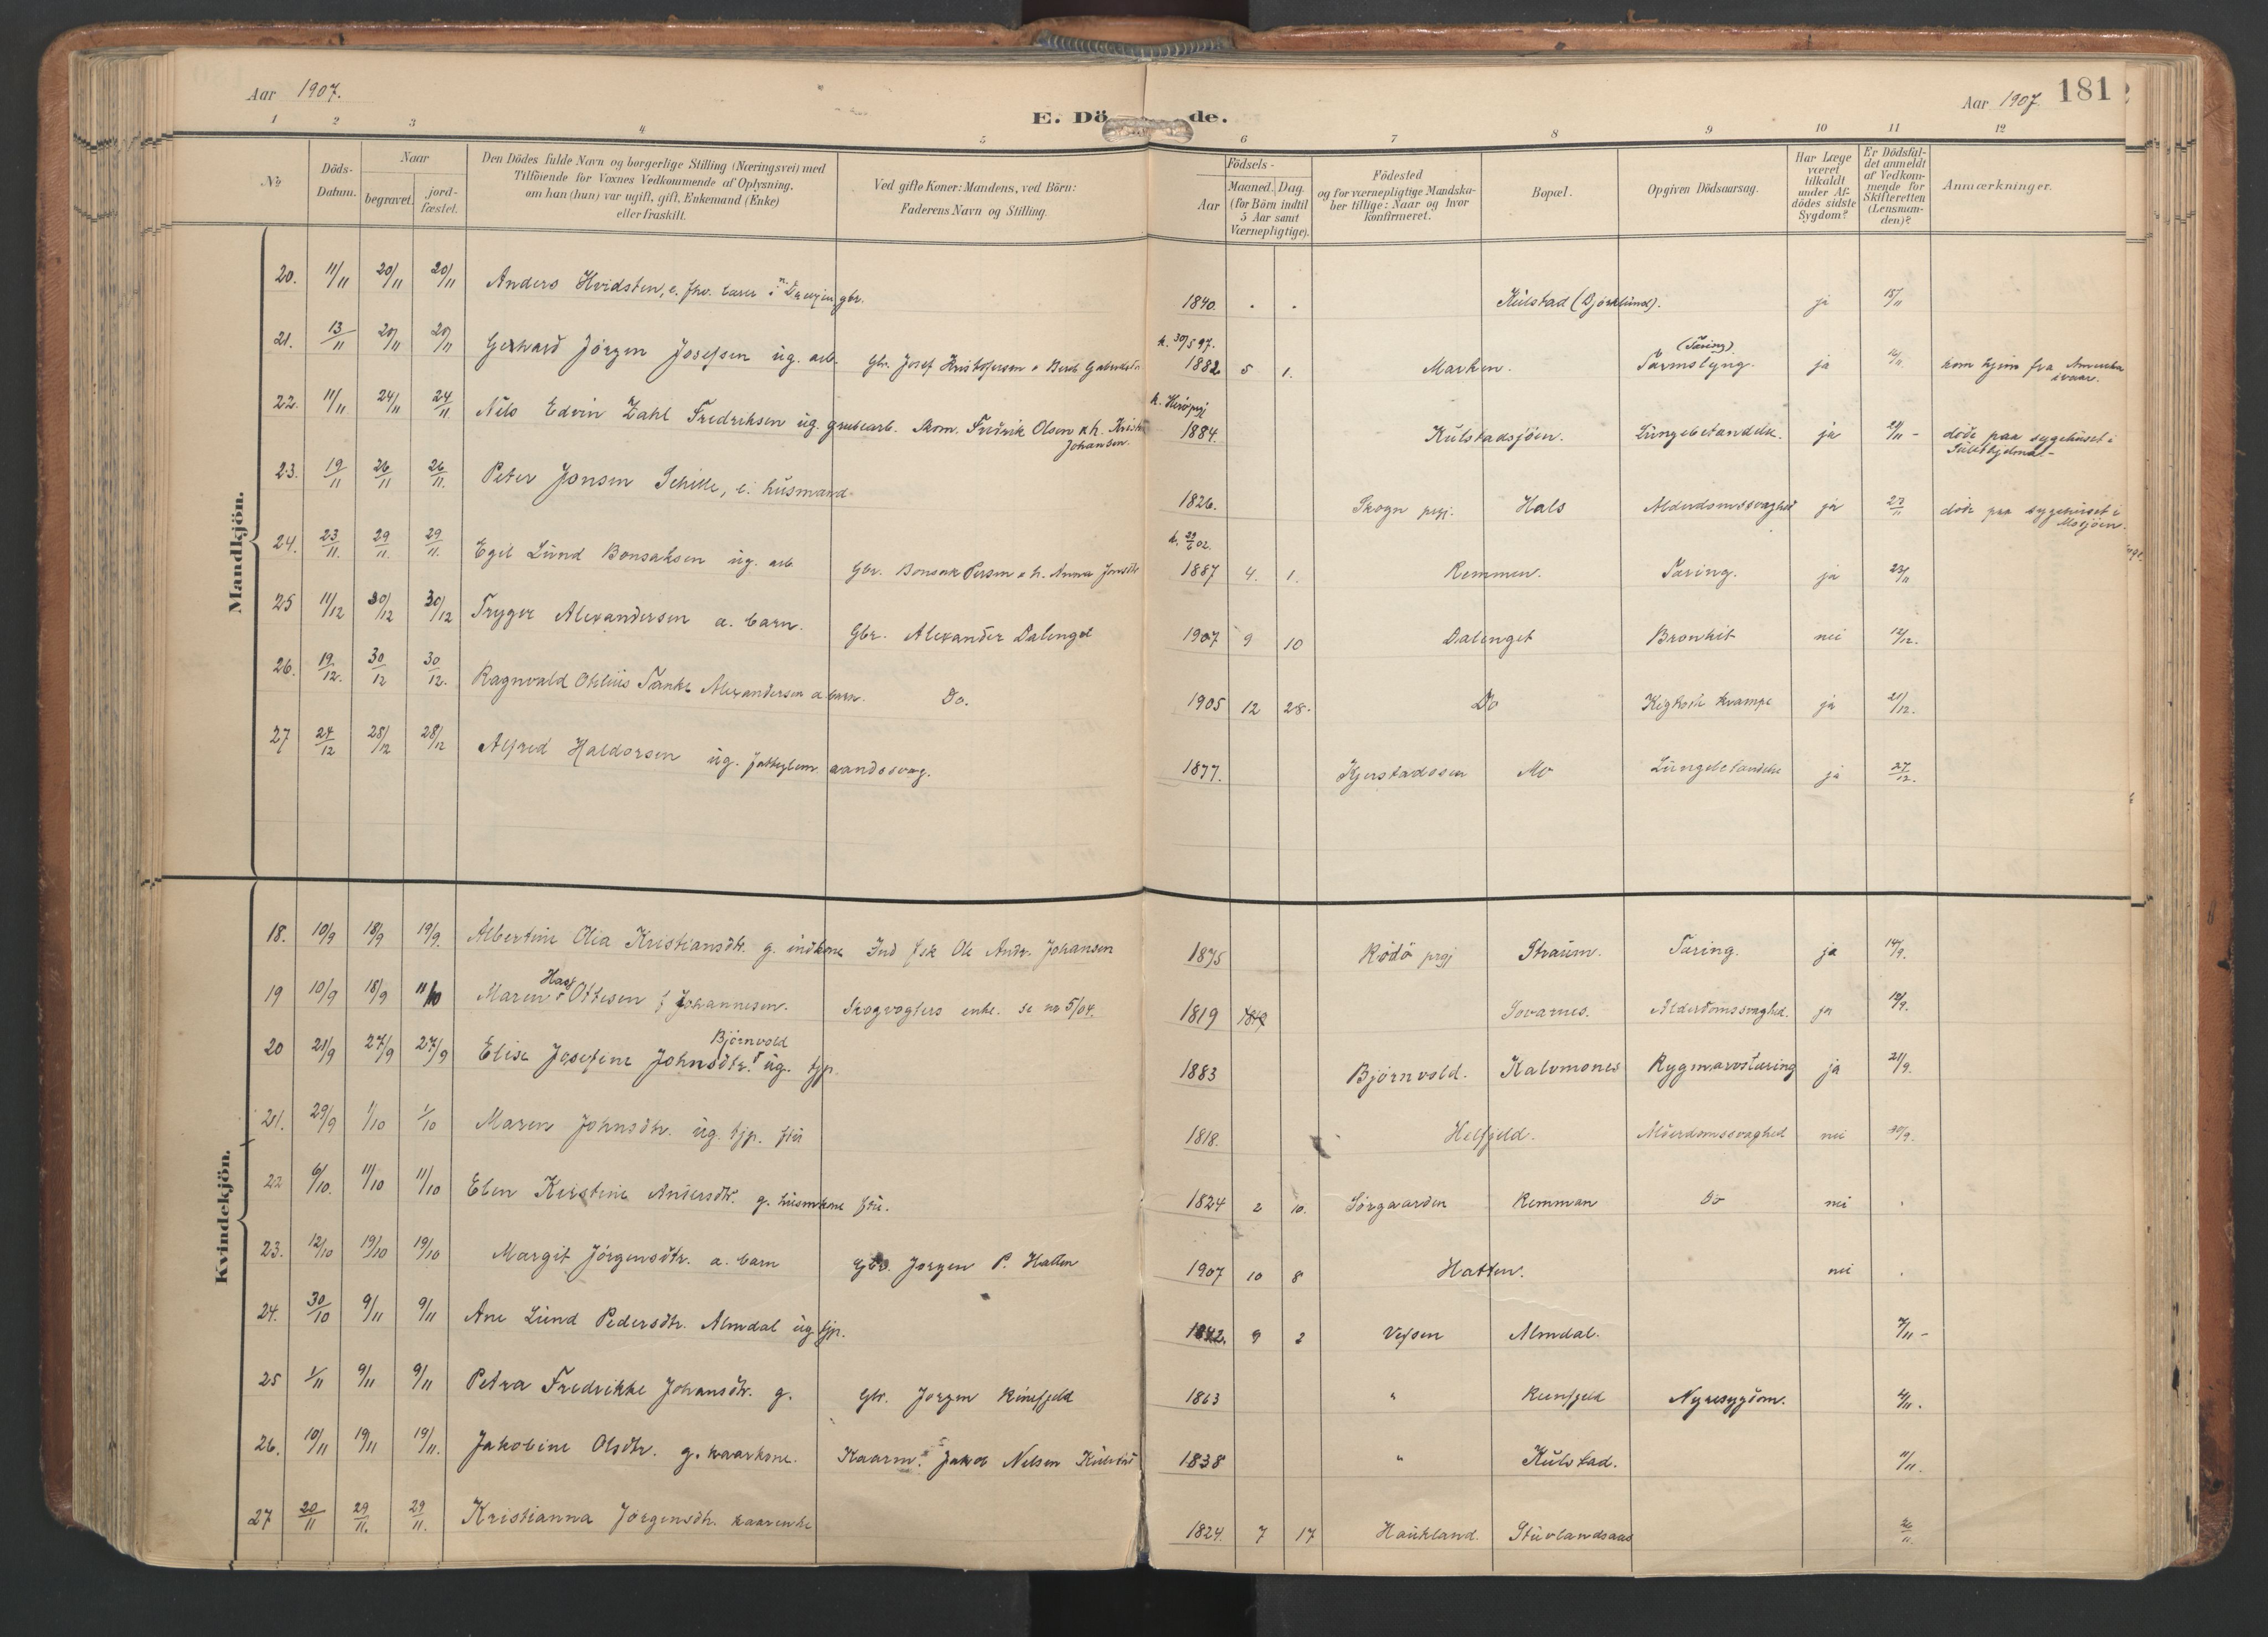 Aar 1907.
E. Dö de.
Aar 1907. 181
1 2 3 4 5 6 7 8 9 10 11 12
No
Döds-Datum.
Naar
begravet.
jord-fæstet.
Den Dödes fulde Navn og borgerlige Stilling (Næringsvei) med
Tilföiende for Voxnes Vedkommende af Oplysning,
om han (hun) var ugift, gift, Enkemand (Enke)
eller fraskilt.
Ved gifte Koner: Mandens, ved Börn:
Faderens Navn og Stilling.
Födsels-
Aar
Maaned. Dag.
(for Börn indtil
5 Aar samt
Værnepligtige).
Födested
og for værnepligtige Mandska-
ber tillige: Naar og hvor
konfirmeret.
Bopæl.
Opgiven Dödsaarsag.
Har Læge
været
tilkaldt
under Af-
dödes sidste
Sygdom?
Er Dödsfal-
det anmeldt
af Vedkom-
mende for
Skifteretten
(Lensman-
den)?
Anmærkninger.
Mandkjön.
20. 11/11 20/11 20/11 Anders Hvidsten, e. fhv. gbr. 1840. Kulstad (Björklund). ja 15/11
21. 13/11 20/11 20/11 Gerhard Jörgen Josefsen ug. arb. Gbr. Josef Kristofersen k. 30/5 97. 1882 5 1. Marken. (Tæring) ja kom hjem fra Amerika ivaar.
22. 11/11 24/11 24/11 Nils Edvin Zahl Fredriksen ug. grubearb. Skom. Fredrik Olsen o. h. Johansen. k. Herö prgj 1884. Kulstadsjöen. Lungebetændelse. ja döde paa sygehuset i Sulithjelma.-
23. 19/11 26/11 26/11. Peter Jonsen Schille, e. husmand 1826. Skogn prgj. Hals Alderdomssvaghed ja 27/11 döde paa sygehuset i Mosjöen.
24. 23/11. 29/11. 29/11. Egil Lund Bonsaksen ug. arb Gbr. Bonsak Persen o. h. Anna Jonsdtr k. 29/6 02. 1887 4. 1. Remmen. Tæring. ja 23/11
25 11/12 30/12 30/12 Trygve Alexandersen a. barn. Gbr. Alexander Dalenget 1907 9 10 Dalenget Bronkit nei 12/12.
26. 19/12. 30/12 30/12. Ragnvald Otelius Tanke Alexandersen a barn. Do. 1905 12 28. Do Kighoste krampe ja 21/12.
27 24/12 28/12 28/12 Alfred Haldorsen ug. fattiglem. aandssvag. 1877. Kjerstadosen Mo Lungebetændelse ja 27/12.
Kvindekjön.
18. 10/9 18/9 19/9. Albertine Olia Kristiansdtr. g. indkone Ind fsk Ole Andr. Johansen 1875 Rödö prgj Straum. Tæring. ja 14/9.
19 10/9 18/9 11/10 Maren Ottesen f Johannesen. Skogvogters enke. se no 5/04. 1819 1819 Sovarnes. Alderdomssvaghed. ja 12/9.
20 21/9 27/9 27/9 Elise Josefine Johnsdtr. Björnvold ug. tjp. 1883 Björnvold. Kalvmones Rygmarvstæring ja 21/9.
21. 29/9 1/10 1/10 Maren Johnsdtr. ug. tjp. ftu 1818. Helfjeld. Alderdomssvaghed nei 30/9.
22 6/10. 11/10 11/10 Elen Kristine Andersdtr. g. husmkone ftu. 1824 2 10. Sörgaarden Remman Do nei
23. 12/10 19/10 19/10 Margit Jörgensdtr. a. barn Gbr. Jörgen P. Hatten 1907 10 8 Hatten. nei
24. 30/10 9/11 9/11 Ane Lund Pedersdtr. Almdal ug tjp. 1842. 9 2 Vefsen Almdal. 7/11 -
25 1/11 9/11 9/11 Petra Fredrikke Johansdtr. g. Gbr. Jörgen Reinfjeld 1863 " Reinfjeld Nyresygdom. 4/11.
26. 10/11 19/11 19/11. Jakobine Olsdtr. g. kaarkone. Kaarm. Jakob Nelsen Kulstad 1838 " Kulstad. 11/11.
27 20/11 29/11. 29/11. Kristianna Jörgensdtr. kaarenke 1824. 7 17 Haukland. Stuvlandsaas